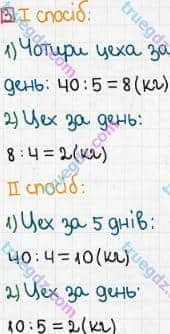 3 I спосіб:
1) Чотири цеха за
день: 40:5=8(кг)
2) Цех за день:
8:4=2(кг)
II спосіб:
1) Цех за 5 днів:
40:4=10(кг)
2) Цех за день:
10:5=2(кг)